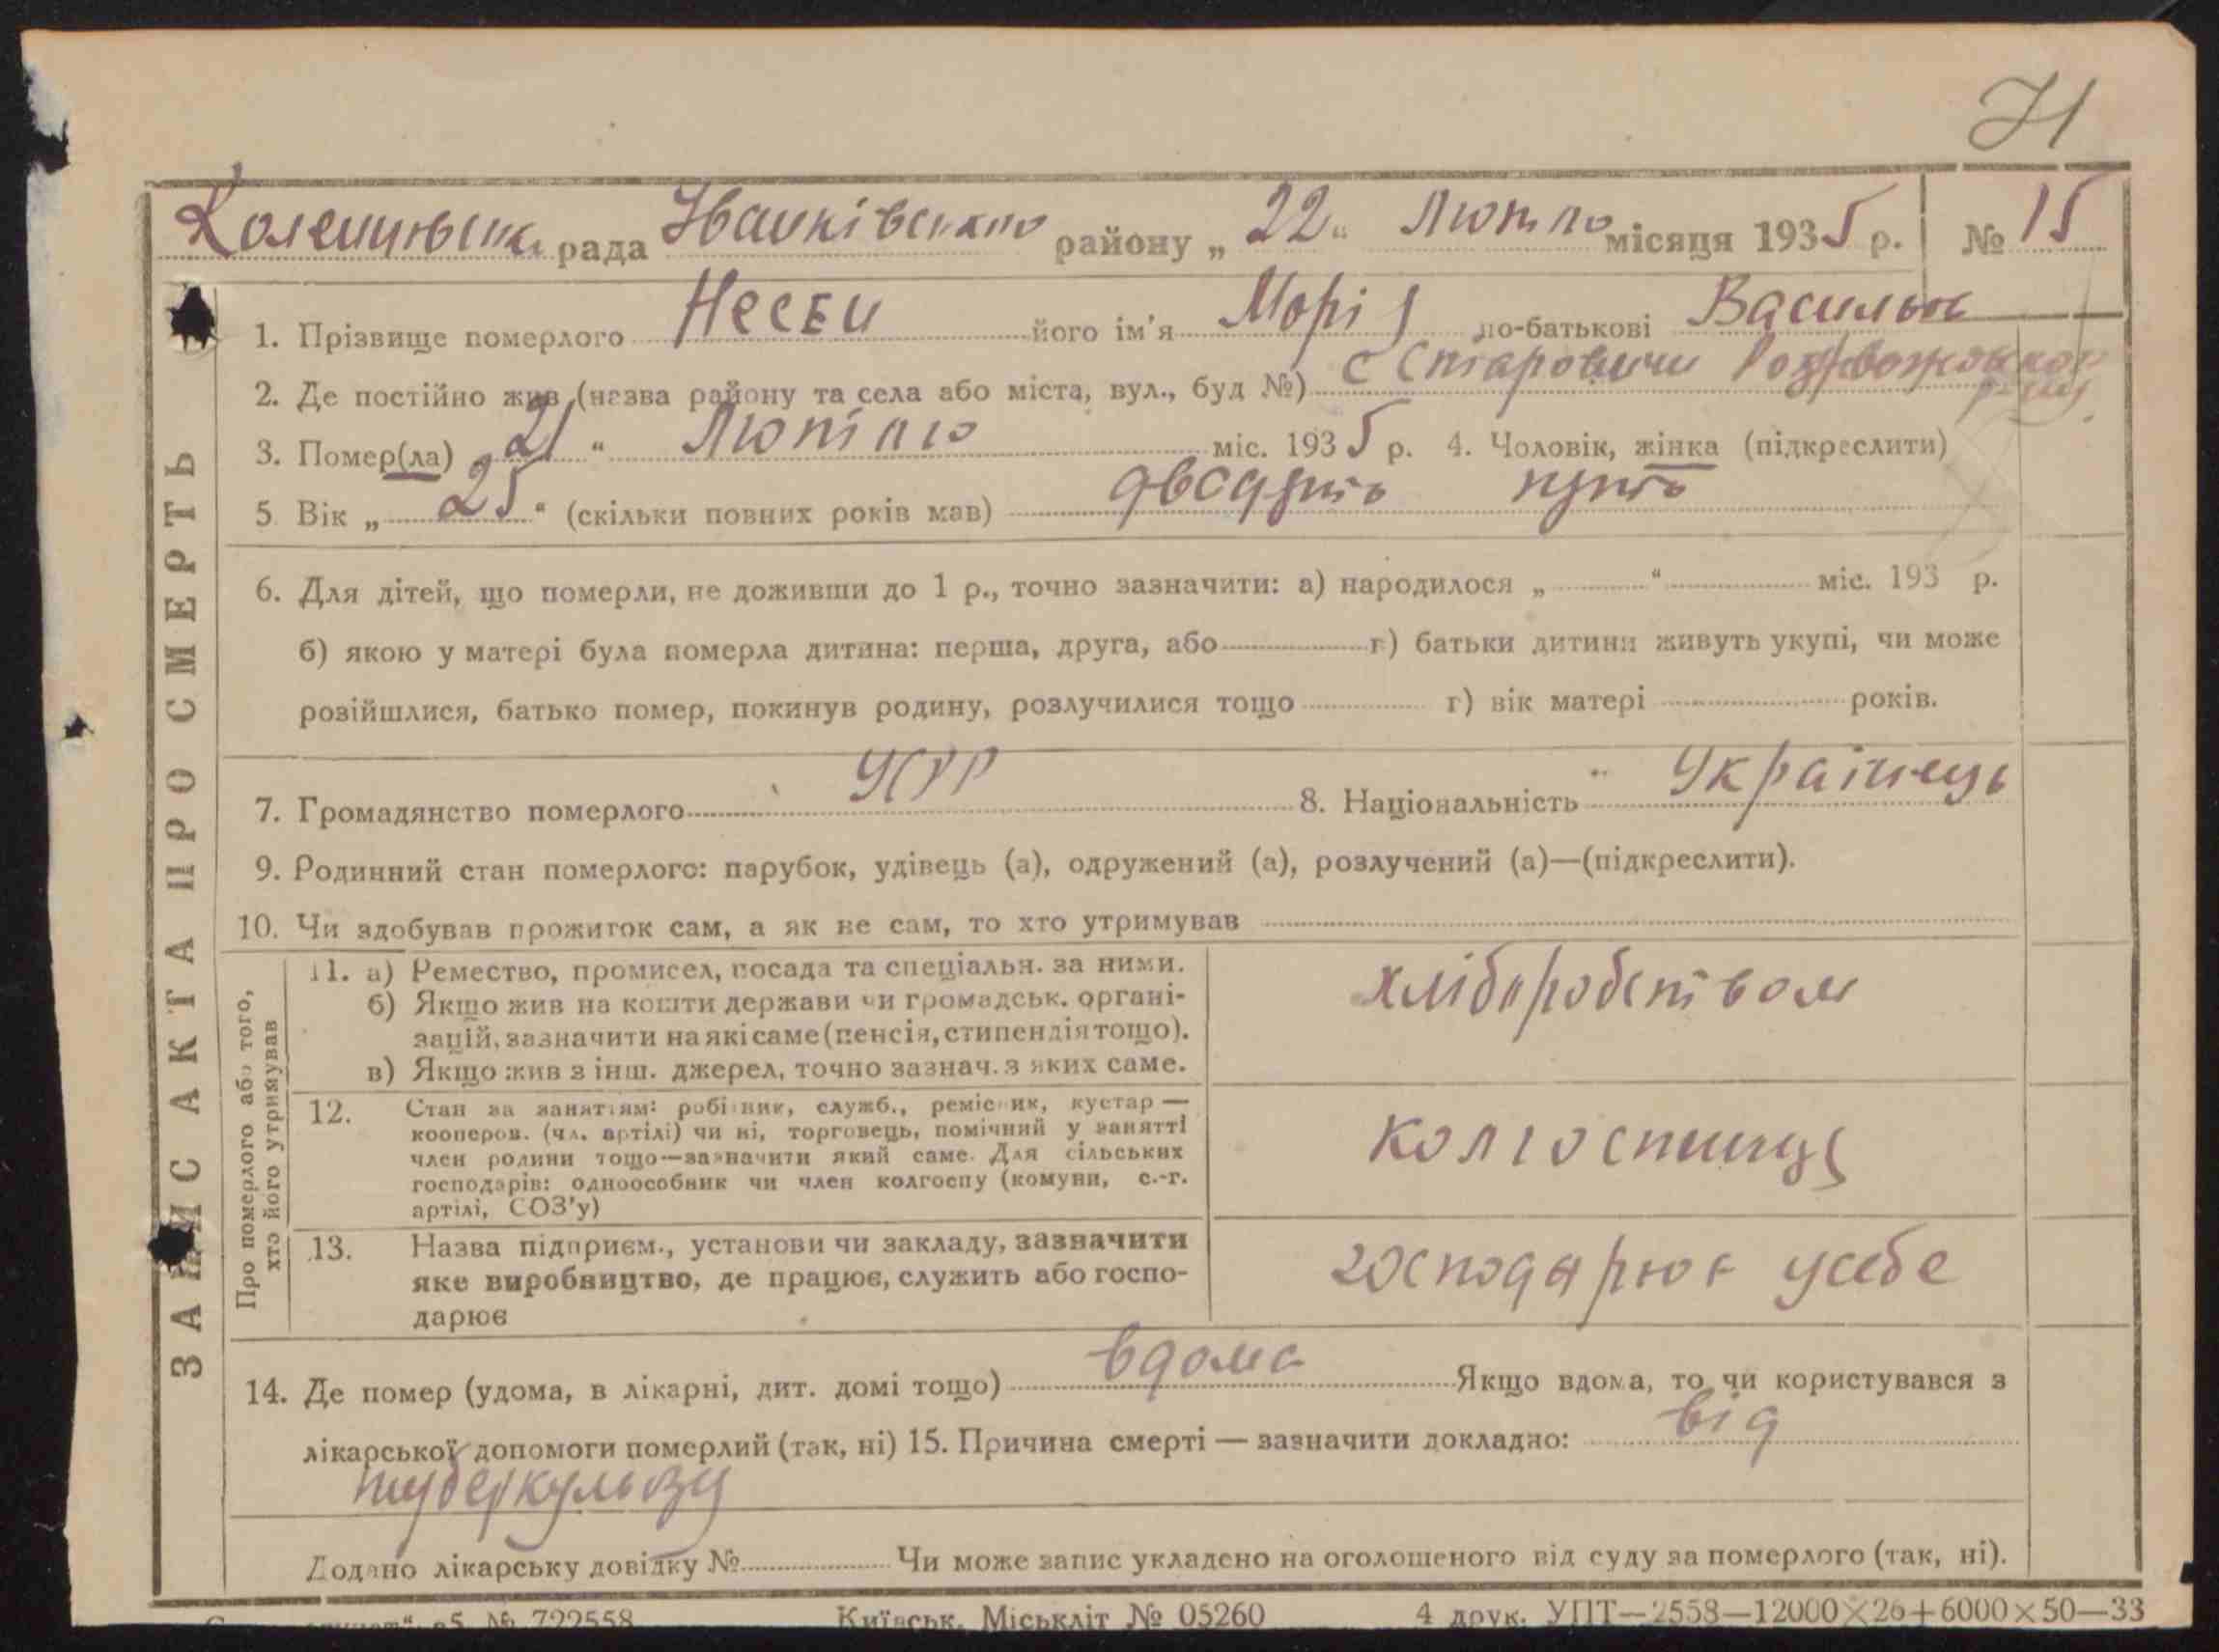 71
рада Іванківського району „ 22 “ Лютого місяця 1935 р. № 15
ЗАПИС АКТА ПРО СМЕРТЬ
1. Прізвище померлого його ім'я Марія по-батькові
2. Де постійно жив (назва району та села або міста, вул., буд №) с Старовичи
3. Помер(ла) 21 “ Лютого міс. 1935 р. 4. Чоловік, жінка (підкреслити)
5. Вік „ 25 “ (скільки повних років мав) двадцять пять
6. Для дітей, що померли, не доживши до 1 р., точно зазначити: а) народилося „ “ міс. 193 р.
б) якою у матері була померла дитина: перша, друга, або г) батьки дитини живуть укупі, чи може
розійшлися, батько помер, покинув родину, розлучилися тощо ґ) вік матері років.
7. Громадянство померлого УСРР 8. Національність Українець
9. Родинний стан померлого: парубок, удівець (а), одружений (а), розлучений (а)—(підкреслити).
10. Чи здобував прожиток сам, а як не сам, то хто утримував
Про померлого або того,
хто його утримував
11. а) Ремество, промисел, посада та спеціальн. за ними.
б) Якщо жив на кошти держави чи громадськ. органі-
зацій, зазначити на які саме (пенсія, стипендія тощо).
в) Якщо жив з інш. джерел, точно зазнач. з яких саме.
хліборобством
12. Стан за заняттям: робітник, служб., ремісник, кустар —
кооперов. (чл. артілі) чи ні, торговець, помічний у занятті
член родини тощо—зазначити який саме. Для сільських
господарів: одноособник чи член колгоспу (комуни, с.-г.
артілі, СОЗ'у)
колгоспниця
13. Назва підприєм., установи чи закладу, зазначити
яке виробництво, де працює, служить або госпо-
дарює
господарює усебе
14. Де помер (удома, в лікарні, дит. домі тощо) вдома Якщо вдома, то чи користувався з
лікарської допомоги померлий (так, ні) 15. Причина смерті — зазначити докладно: від
туберкульозу
Додано лікарську довідку № Чи може запис укладено на оголошеного від суду за померлого (так, ні).
№ 722558 Київськ. Міськліт № 05260 4 друк. УПТ—2558—12000×26+6000×50—33